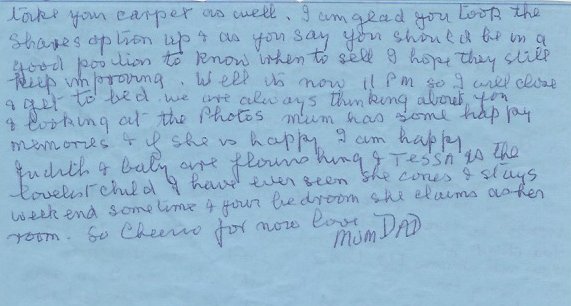 take your carpet as well. I am glad you took the
shares option up & as you say you should be in a
good position to know when to sell I hope they still
keep improving. Well its now 11 PM so I will close
& get to bed. we are always thinking about you
& looking at the Photos mum has some happy
memories & if she is happy I am happy
Judith & baby are flourishing & TESSA is the
lovelist child I have ever seen she comes & stays
week end sometime & your bedroom she claims as her
room. So Cheerio for now love
MUM DAD